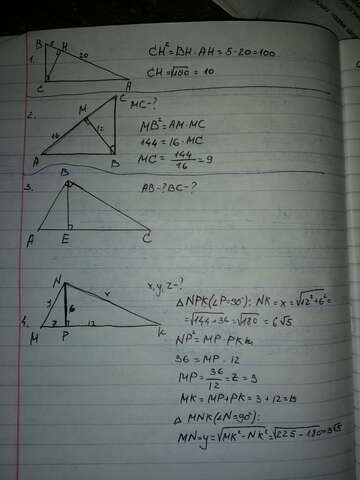 B 5 H
20
1.
C A
CH² = BH · AH = 5 · 20 = 100
CH = √100 = 10
2.
C
M
MC - ?
16 12
A B
MB² = AM · MC
144 = 16 · MC
MC = 144/16 = 9
3.
B
AB - ? BC - ?
A E C
4.
N
x, y, z - ?
y 6 x
z 12
M P K
△ NPK (∠P = 90°): NK = x = √12² + 6² =
= √144 + 36 = √180 = 6√5
NP² = MP · PK
36 = MP · 12
MP = 36/12 = z = 3
MK = MP + PK = 3 + 12 = 15
△ MNK (∠N = 90°):
MN = y = √MK² - NK² = √225 - 180 = 3√5